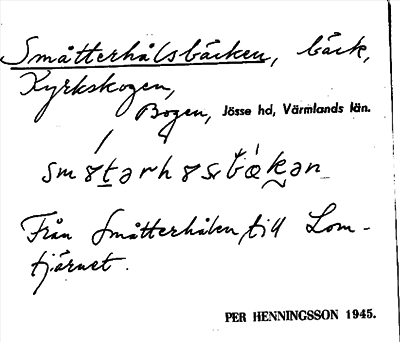 Småtterhålsbäcken, bäck,
Kyrkskogen,
Bogen, Jösse hd, Värmlands län.
Från Småtterhålen till Lom-
tjärnet.
PER HENNINGSSON 1945.